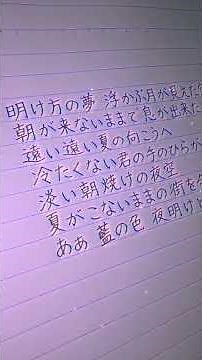 明け方の夢 浮かぶ月が見えた
朝が来ないままで息が出来た
遠い遠い夏の向こうへ
冷たくない君の手のひらが
淡い朝焼けの夜空
夏がこないままの街を
ああ 藍の色 夜明けと